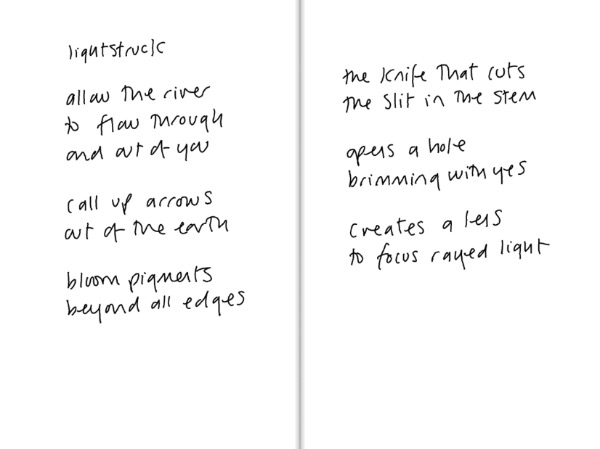 lightstruck
allow the river
to flow through
and out of you
call up arrows
out of the earth
bloom pigments
beyond all edges
the knife that cuts
the slit in the stem
opens a hole
brimming with yes
creates a lens
to focus rayed light